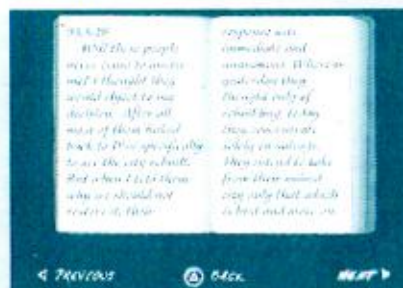 Will these people
never cease to amaze
me? I thought they
would object to my
decision. After all
most of them hiked
back to D'ni specifically
to see the city rebuilt.
But when I told them
why we should not
restore it, their
response was
immediate and
unanimous. Where as
yesterday they
thought only of
rebuilding, today
they concentrate
solely on salvage.
They intend to take
from their ruined
city only that which
is best and move on.
PREVIOUS
BACK
NEXT